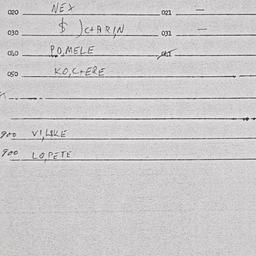 020 NEX 021 —
030 $ )C+ARI,N 031 —
040 PO,MELE
050 KO,C+ERE
900 VI,LIKE
900 LO,PETE